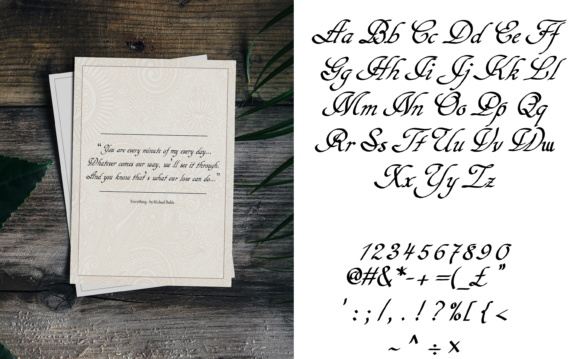 "You are every minute of my every day...
Whatever comes our way, we'll see it through.
And you know that's what our love can do..."
Everything - by
Aa Bb Cc Dd Ee Ff
Gg Hh Ii Jj Kk Ll
Mm Nn Oo Pp Qq
Rr Ss Tt Uu Vv Ww
Xx Yy Zz
1234567890
@#&*-+=(_£"
':;/,.!?%[{<
~^÷x